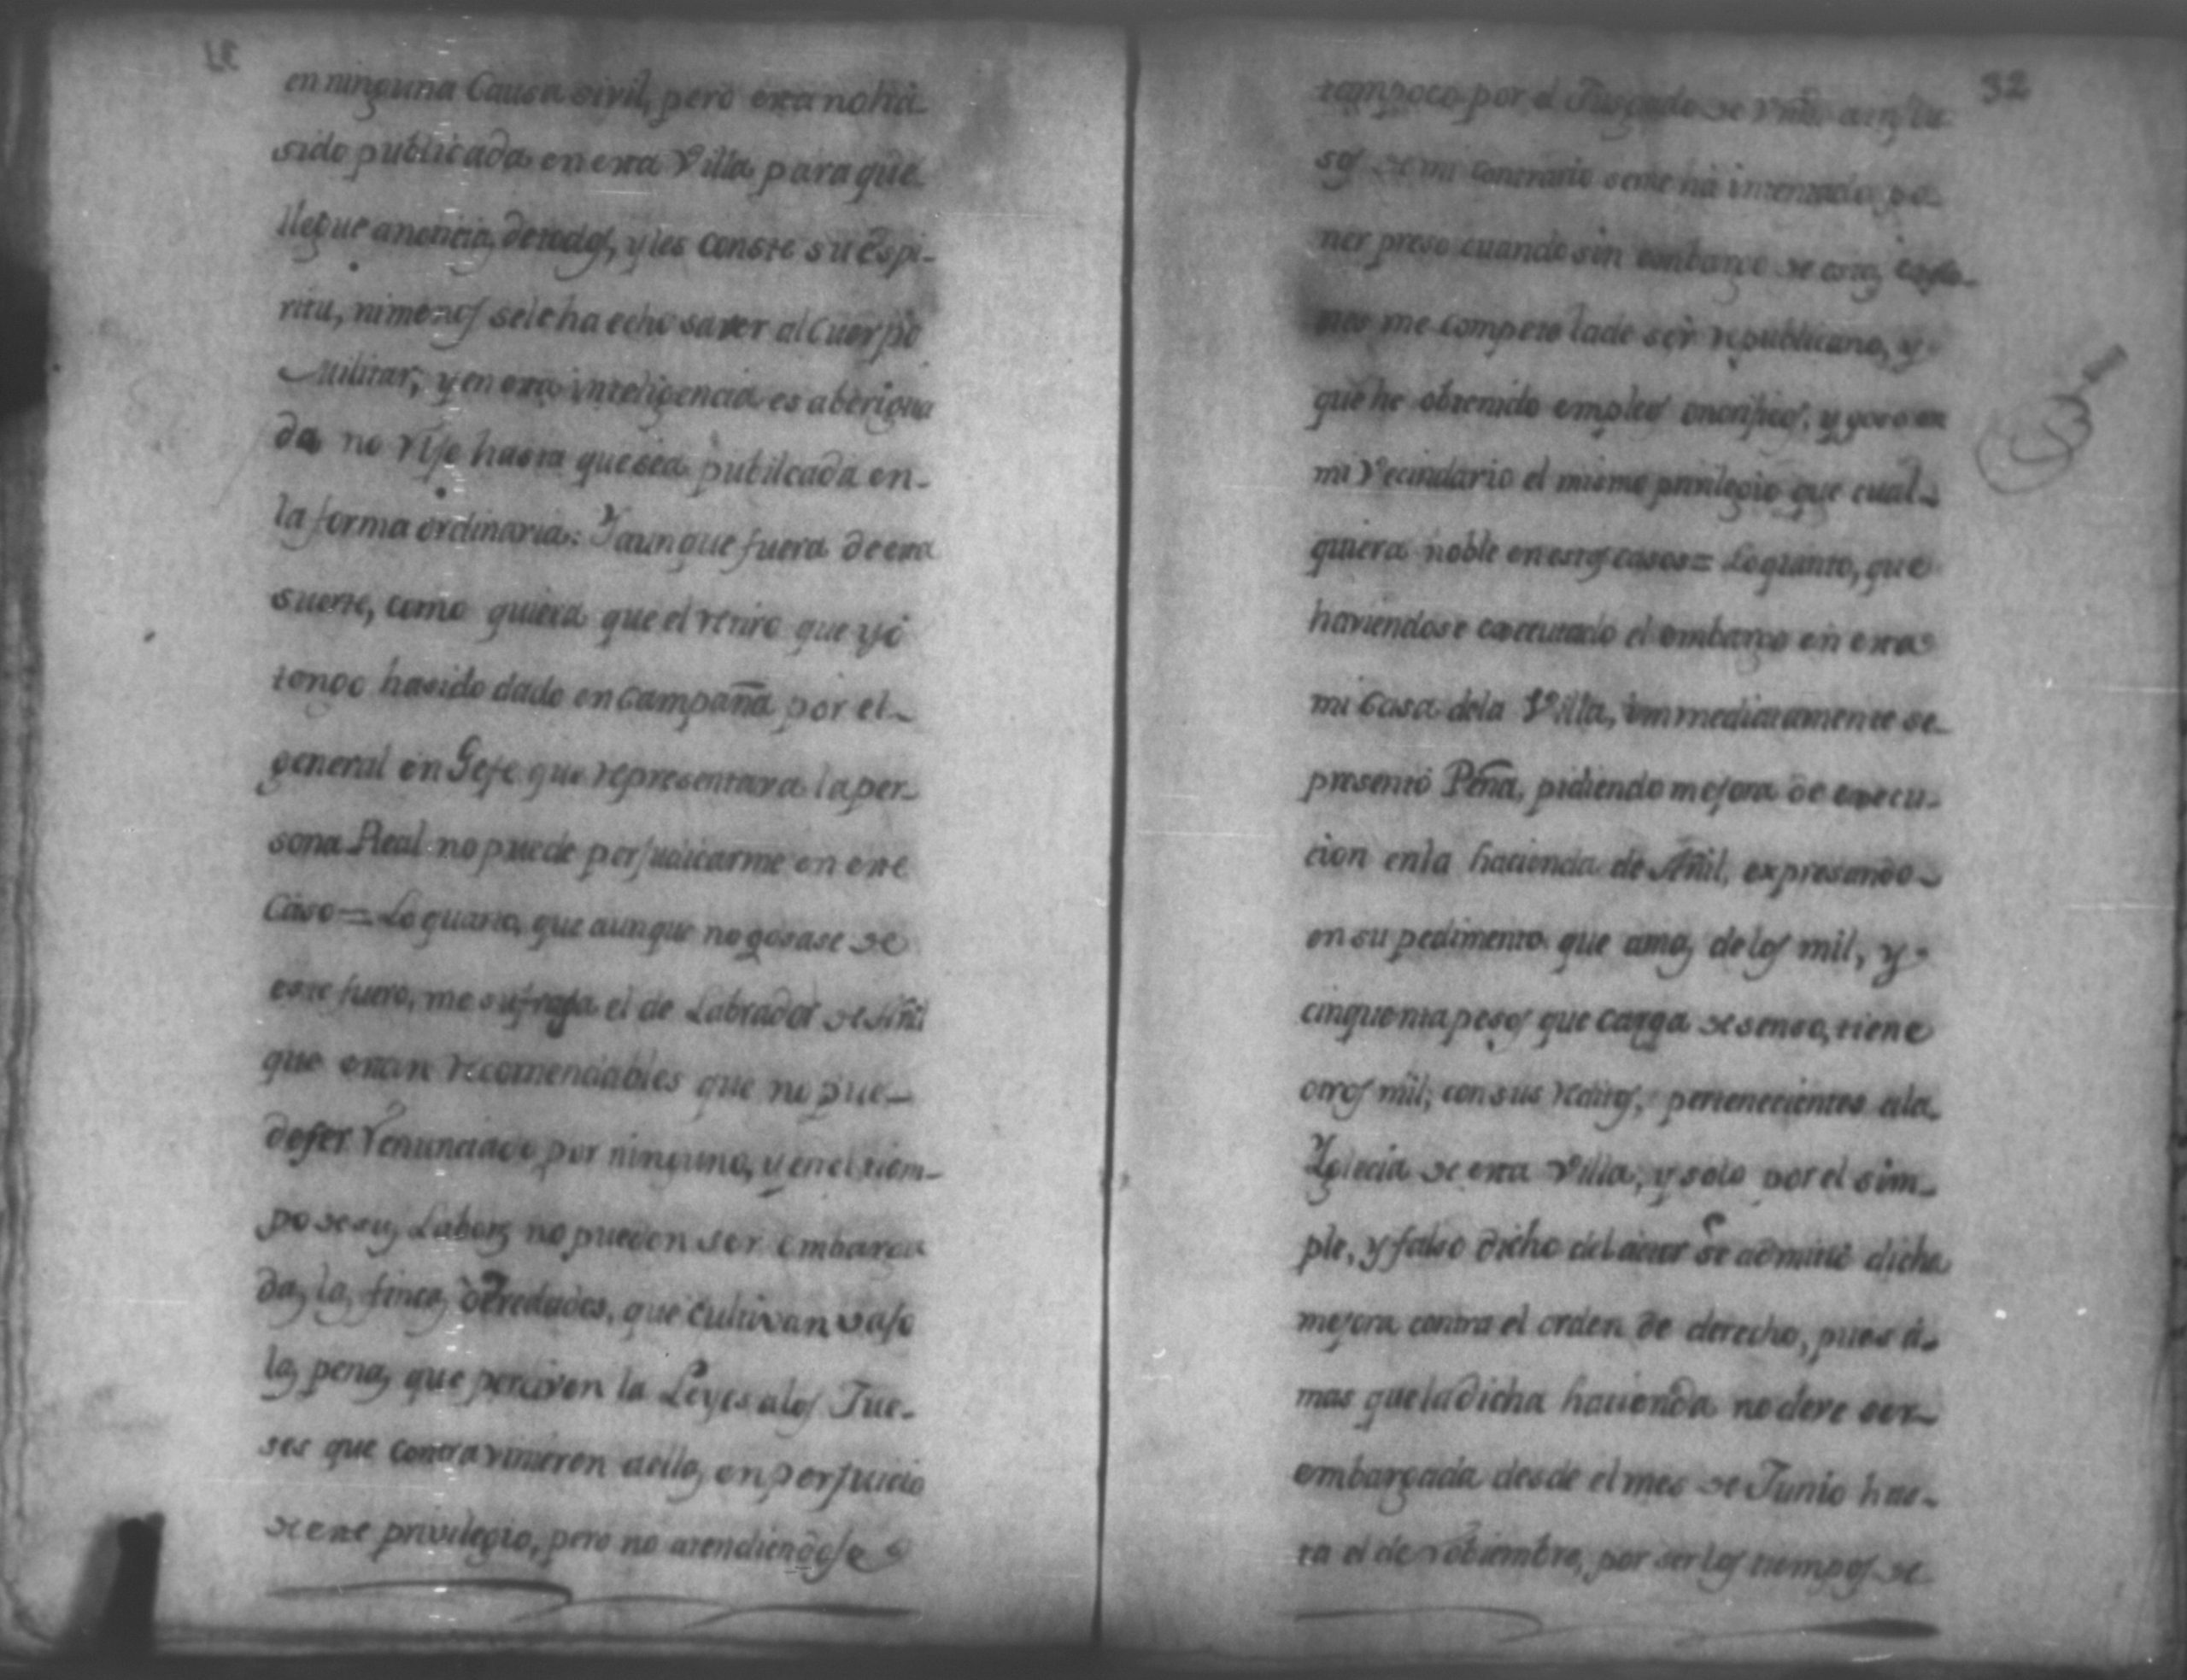 en ninguna Causa sivil, pero esta no há
sido publicada en esta Villa para que
llegue anoticia, de todos, y les conste su Espi-
ritu, ni menos sele ha echo saver al Cuerpo
Militar; y en esta inteligencia es aberigua
da no rije hasta que sea publicada en-
la forma ordinaria: Y aunque fuera de esta
suerte, como quiera que el retiro que yó
tengo ha sido dado en Campaña por el-
general en Gefe que representava la per-
sona Real no puede perjudicarme en este
Caso = Lo quarto, que aunque no gosase de
este fuero, me sufraga el de Labrador de Añil
que estan recomendables que no pue-
de ser renunciado por ninguno, y en el tiem-
po de sus Labores no pueden ser embarga
das las fincas, ò Eredades, que cultivan vajo
las penas que perciven la Leyes alos Jue-
ses que contravinieren aellas en perjuicio
de este privilegio, pero no atendiendose
32
tampoco por el Jusgado de Vmd.
sos de mi contrario seme há intentado po-
ner preso cuando sin embargo de estas
nes me compete la de ser republicano, y
que he obtenido empleos onorificos, y goso en
mi Vecindario el mismo privilegio que cual-
quiera noble en estos casos = Lo quinto, que
haviendose executado el embargo en esta
mi Casa dela Villa, immediatamente se-
presentó Peña, pidiendo mejora de execu-
cion enla hacienda de Añil, expresando-
en su pedimento que amas delos mil, y
cinquenta pesos que carga de senso, tiene
otros mil, con sus reditos, pertenecientes ala
Yglecia de esta Villa, y solo por el sim-
ple, y falso dicho del actor se admitió dicha
mejora contra el orden de derecho, pues á-
mas que la dicha hacienda no deve ser-
embargada desde el mes de Junio has-
ta el de Obtiembre, por ser los tiempos de